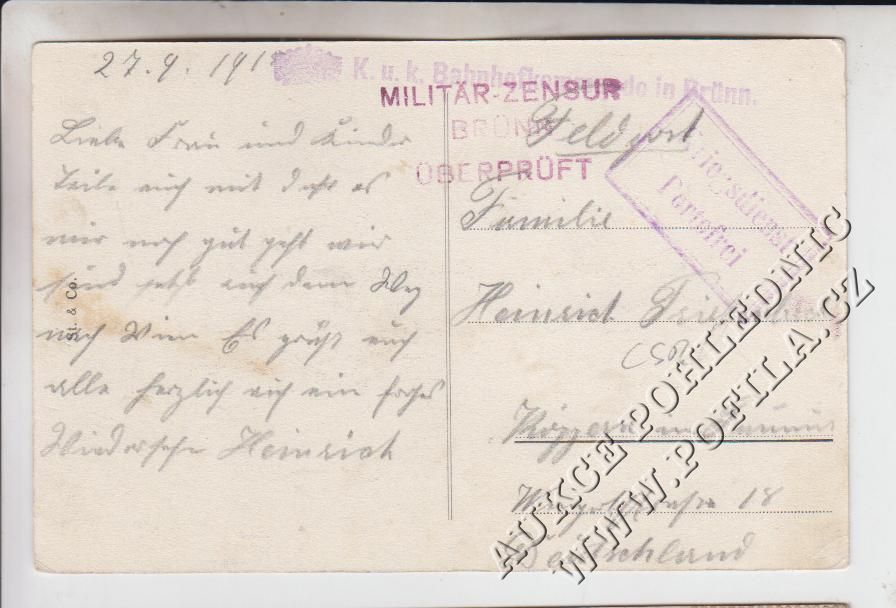 27.9.191
K. u. k. Bahnhofkommando in Brünn.
MILITÄR-ZENSUR
BRÜNN
ÜBERPRÜFT
Feldpost
Kriegsdienst
Portofrei
Liebe Frau und Kinder
Teile euch mit daß es
mir noch gut geht wir
sind jetzt auch dem Weg
nach Wien Es grüßt euch
alle herzlich auf ein frohes
Wiedersehn Heinrich
St. & Co.
Familie
Heinrich
Köppern im Taunus
18
Deutschland
AUKCE POHLEDNIC
WWW.POFILA.CZ